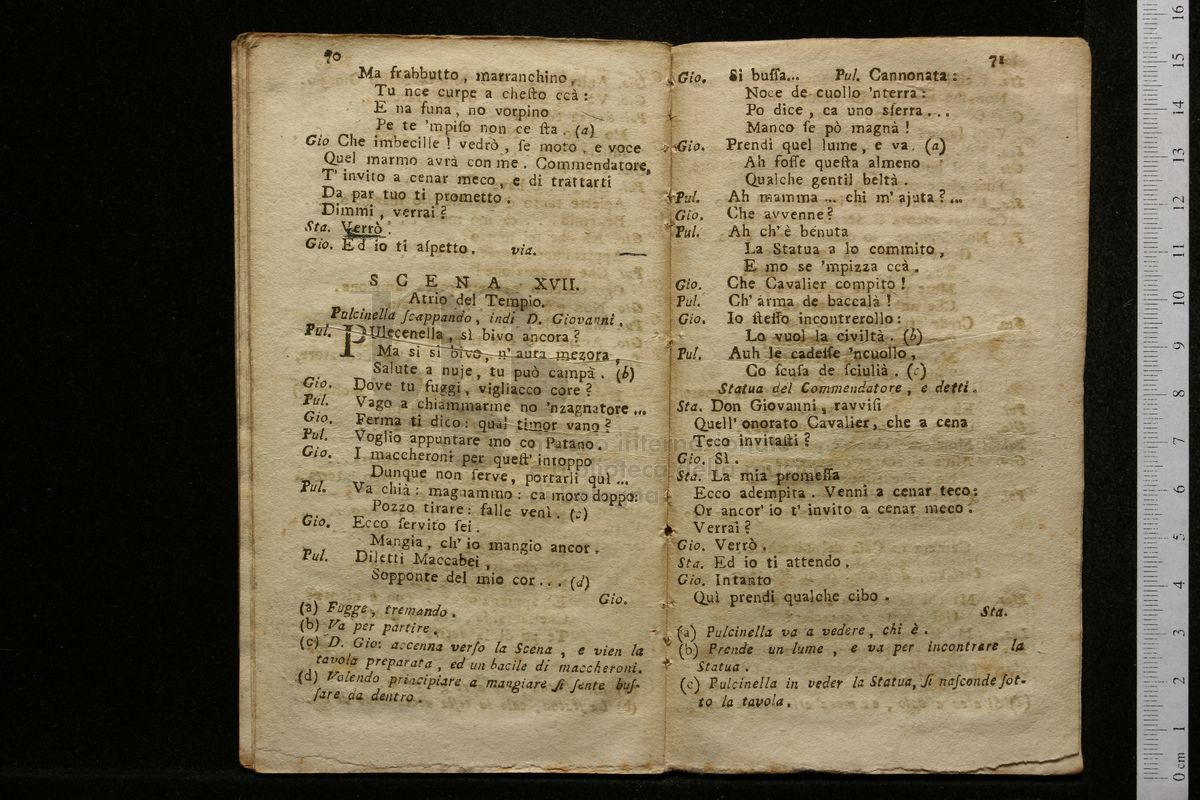 70
Ma frabbutto, marranchino,
Tu nce curpe a cheſto ccà:
E na funa, no vorpino
Pe te 'mpiſo non ce ſta. (a)
Gio Che imbecille! vedrò, ſe moto, e voce
Quel marmo avrà con me. Commendatore,
T' invito a cenar meco, e di trattarti
Da par tuo ti prometto.
Dimmi, verrai?
Sta. Verrò.
Gio. Ed io ti aſpetto. via.
SCENA XVII.
Atrio del Tempio.
Pulcinella ſcappando, indi D. Giovanni.
Pul. PUlecenella, sì bivo ancora?
Ma si si bivo, n' auta mezora,
Salute a nuje, tu può campà. (b)
Gio. Dove tu fuggi, vigliacco core?
Pul. Vago a chiammarme no 'nzagnatore...
Gio. Ferma ti dico: qual timor vano?
Pul. Voglio appuntare mo co Patano.
Gio. I maccheroni per queſt' intoppo
Dunque non ſerve, portarli quì...
Pul. Va chià: magnammo: ca moro doppo:
Pozzo tirare: falle venì. (c)
Gio. Ecco ſervito ſei.
Mangia, ch' io mangio ancor.
Pul. Diletti Maccabei,
Sopponte del mio cor... (d)
Gio.
(a) Fugge, tremando.
(b) Va per partire.
(c) D. Gio: accenna verſo la Scena, e vien la
tavola preparata, ed un bacile di maccheroni.
(d) Volendo principiare a mangiare ſi ſente buſ-
ſare da dentro.
71
Gio. Si buſſa... Pul. Cannonata:
Noce de cuollo 'nterra:
Po dice, ca uno sferra...
Manco ſe pò magnà!
Gio. Prendi quel lume, e va. (a)
Ah foſſe queſta almeno
Qualche gentil beltà.
Pul. Ah mamma... chi m' ajuta?...
Gio. Che avvenne?
Pul. Ah ch' è benuta
La Statua a lo commito,
E mo se 'mpizza ccà.
Gio. Che Cavalier compito!
Pul. Ch' arma de baccalà!
Gio. Io ſteſſo incontrerollo:
Lo vuol la civiltà. (b)
Pul. Auh le cadeſſe 'ncuollo,
Co ſcuſa de ſciulià. (c)
Statua del Commendatore, e detti.
Sta. Don Giovanni, ravviſi
Quell' onorato Cavalier, che a cena
Teco invitaſti?
Gio. Sì.
Sta. La mia promeſſa
Ecco adempita. Venni a cenar teco:
Or ancor' io t' invito a cenar meco.
Verrai?
Gio. Verrò.
Sta. Ed io ti attendo.
Gio. Intanto
Quì prendi qualche cibo.
Sta.
(a) Pulcinella va a vedere, chi è.
(b) Prende un lume, e va per incontrare la
Statua.
(c) Pulcinella in veder la Statua, ſi naſconde ſot-
to la tavola.
0 cm 1 2 3 4 5 6 7 8 9 10 11 12 13 14 15 16